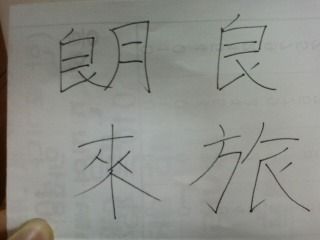 朗良
來旅